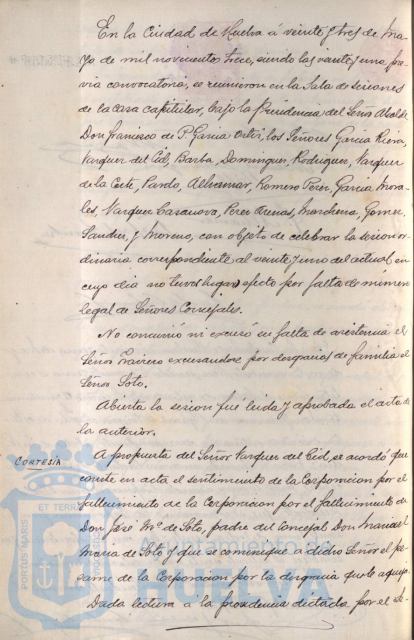 En la Ciudad de Huelva á veinte y tres de Ma-
yo de mil novecientos trece, siendo las veinte y una pré-
via convocatoria, se reunieron en la Sala de sesiones
de la casa capitular, bajo la Presidencia del Señor Alcalde
Don Francisco de P. Garcia Ortiz, los Señores Garcia Riera,
Vazquez del Cid, Barba, Dominguez, Rodriguez, Vazquez
de la Corte, Pardo, Romero Perez, Garcia Mora-
les, Vazquez Casanova, Perez Arenas, Marchena, Gomez,
Sanchez, y Moreno, con objeto de celebrar la sesion or-
dinaria correspondiente al veinte y uno del actual, en
cuyo dia no tuvo lugar efecto por falta de número
legal de Señores Concejales.
No concurrió ni excusó su falta de asistencia el
Señor excusandose por desgracias de familia el
Señor Soto.
Abierta la sesion fué leida y aprobada el acta de
la anterior.
CORTESÍA
A propuesta del Señor Vazquez del Cid, se acordó que
conste en acta el sentimiento de la Corporacion por el
fallecimiento de la Corporacion por el fallecimiento de
Don José Mª de Soto, padre del Concejal Don Manuel
Maria de Soto y que se comunique a dicho Señor el pe-
same de la Corporacion por la desgracia que le aqueja.
Dada lectura á la providencia dictada por el Se-
PORTUS MARIS
ET TERRAE
Ayuntamiento de
HUELVA